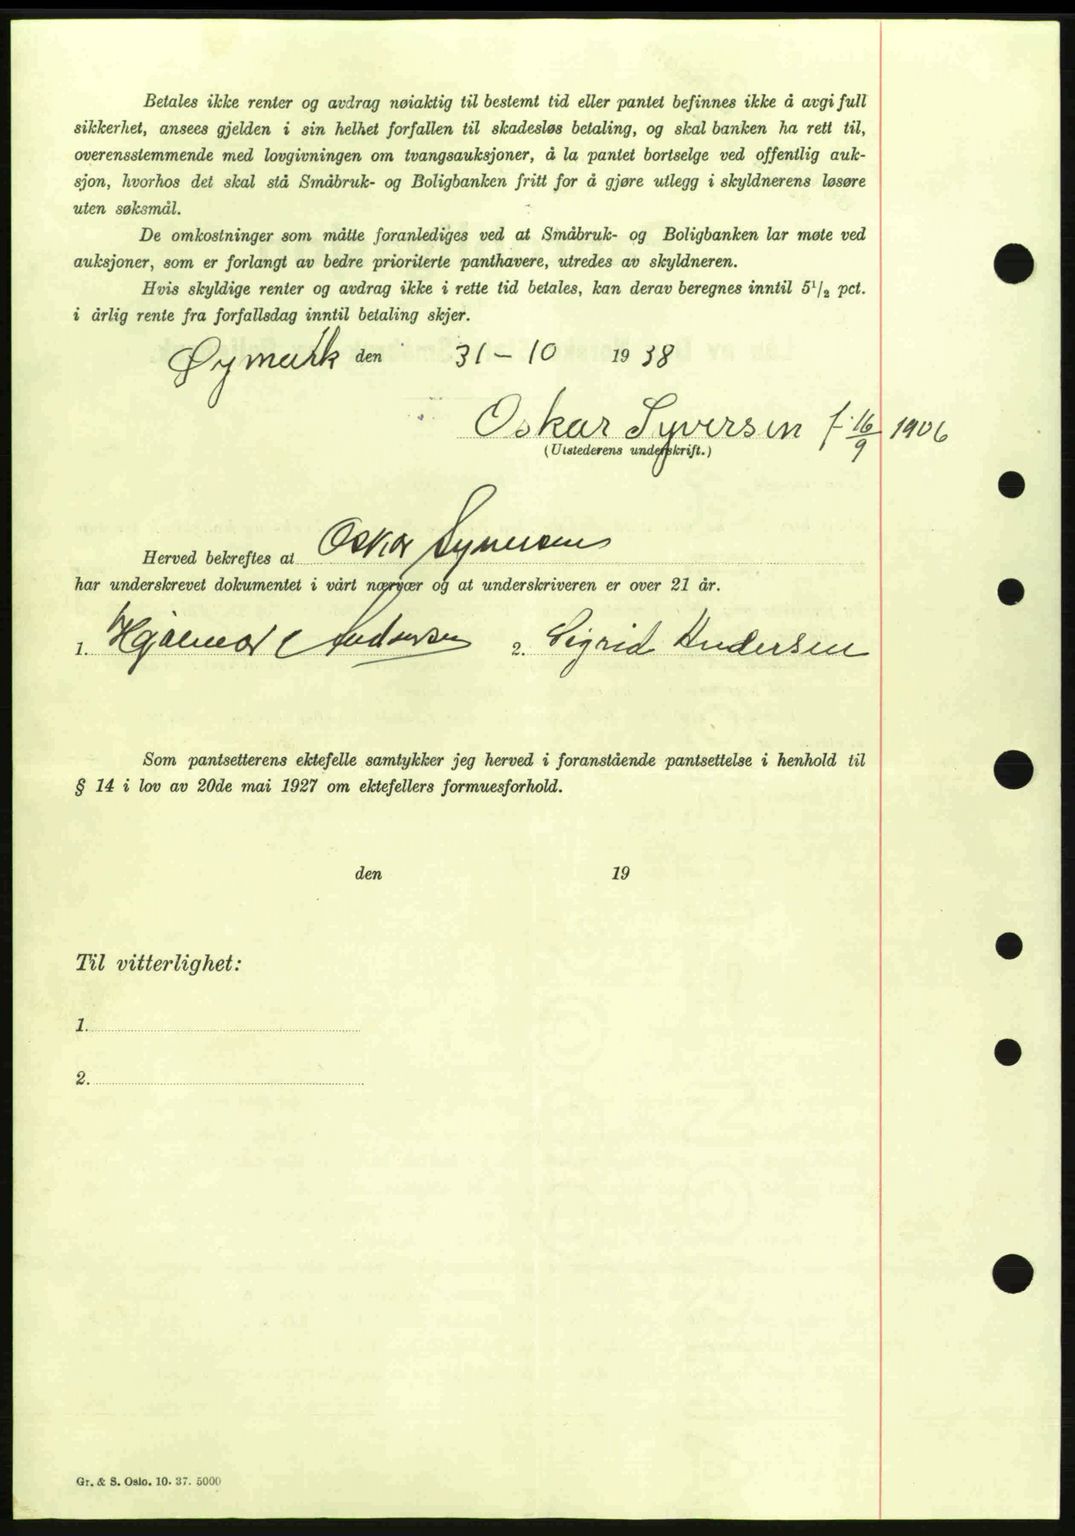 Betales ikke renter og avdrag nøiaktig til bestemt tid eller pantet befinnes ikke å avgi full
sikkerhet, ansees gjelden i sin helhet forfallen til skadesløs betaling, og skal banken ha rett til,
overensstemmende med lovgivningen om tvangsauksjoner, å la pantet bortselge ved offentlig auk-
sjon, hvorhos det skal stå Småbruk- og Boligbanken fritt for å gjøre utlegg i skyldnerens løsøre
uten søksmål.
De omkostninger som måtte foranlediges ved at Småbruk- og Boligbanken lar møte ved
auksjoner, som er forlangt av bedre prioriterte panthavere, utredes av skyldneren.
Hvis skyldige renter og avdrag ikke i rette tid betales, kan derav beregnes inntil 5½ pct.
i årlig rente fra forfallsdag inntil betaling skjer.
Øymark den 31-10 1938
Oskar Syversen f. 16/9 1906
(Utstederens underskrift.)
Herved bekreftes at Oskar Syversen
har underskrevet dokumentet i vårt nærvær og at underskriveren er over 21 år.
1. Hjalmar Andersen 2. Sigrid Andersen
Som pantsetterens ektefelle samtykker jeg herved i foranstående pantsettelse i henhold til
§ 14 i lov av 20de mai 1927 om ektefellers formuesforhold.
den 19
Til vitterlighet:
1.
2.
Gr. & S. Oslo. 10. 37. 5000